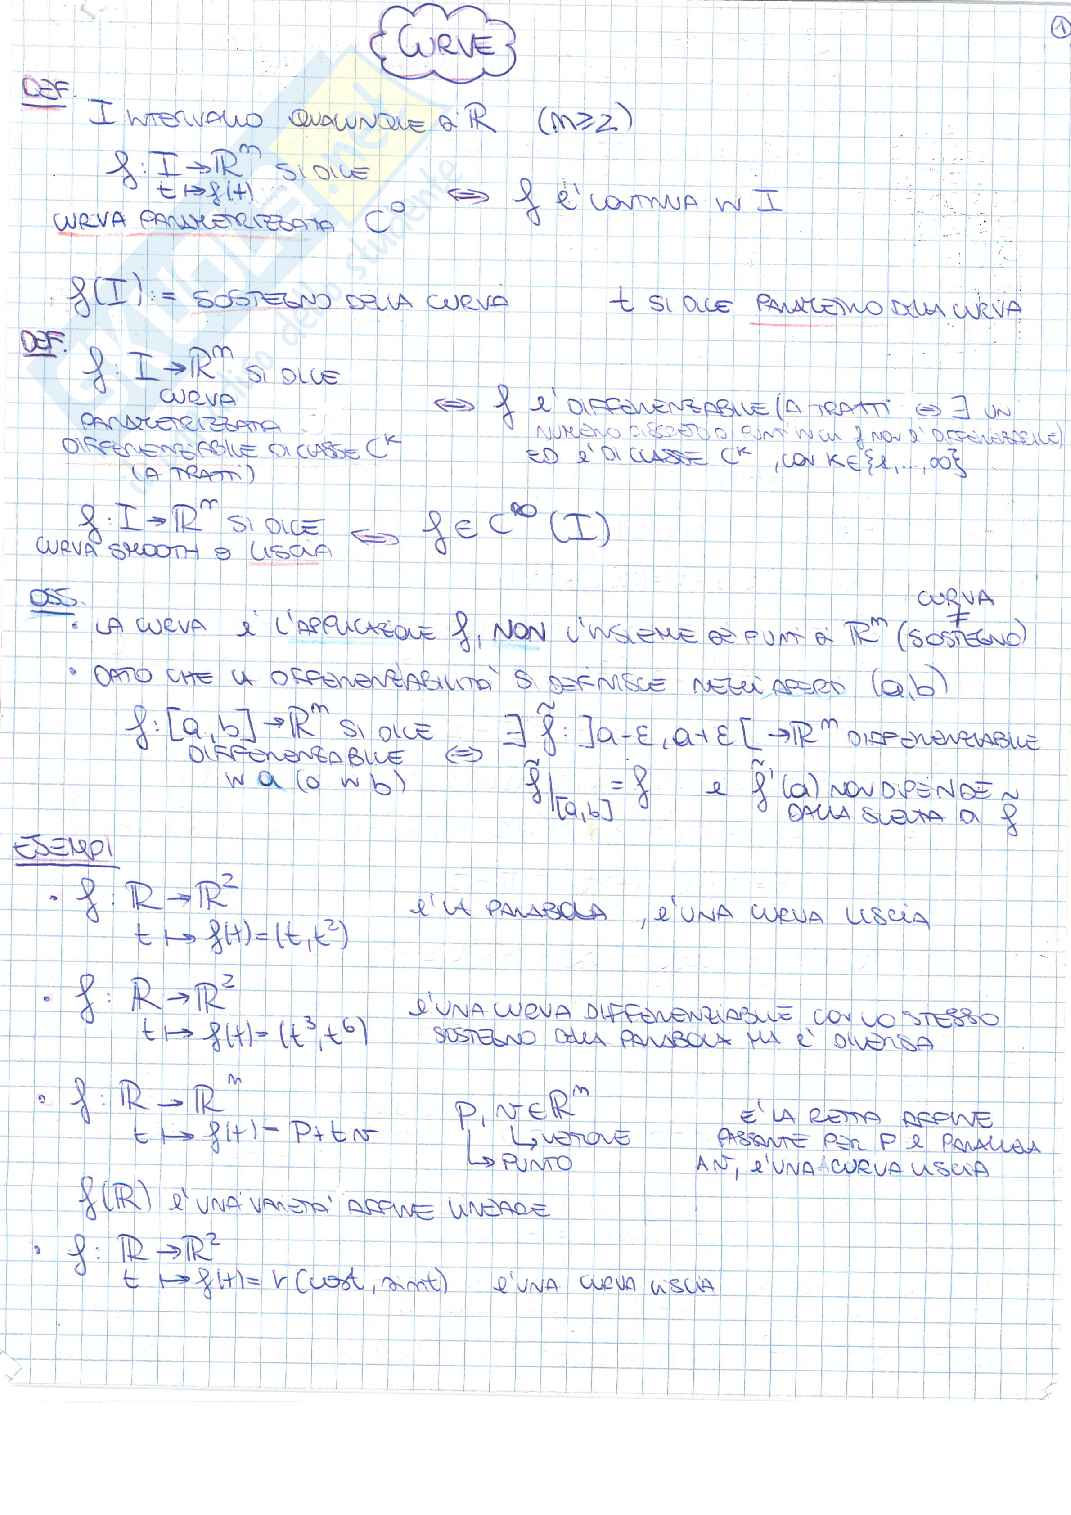 1
CURVE
DEF.
I INTERVALLO QUALUNQUE DI ℝ (m≥2)
f: I → ℝᵐ SI DICE
t ↦ f(t)
CURVA PARAMETRIZZATA C⁰ ⇔ f È CONTINUA IN I
f(I) := SOSTEGNO DELLA CURVA t SI DICE PARAMETRO DELLA CURVA
DEF.
f: I → ℝᵐ SI DICE
CURVA
PARAMETRIZZATA
DIFFERENZIABILE DI CLASSE Cᴷ
(A TRATTI)
⇔ f È DIFFERENZIABILE (A TRATTI ⇔ ∃ UN
NUMERO DISCRETO DI PUNTI IN CUI f NON È DIFFERENZIABILE)
ED È DI CLASSE Cᴷ, CON K∈{1,...,∞}
f: I → ℝᵐ SI DICE
CURVA SMOOTH O LISCIA ⇔ f ∈ C^∞(I)
OSS.
• LA CURVA È L'APPLICAZIONE f, NON L'INSIEME DEI PUNTI DI ℝᵐ (SOSTEGNO)
CURVA
≠
• DATO CHE LA DIFFERENZIABILITÀ SI DEFINISCE NEGLI APERTI (a,b)
f: [a,b] → ℝᵐ SI DICE
DIFFERENZIABILE
IN a (O IN b)
⇔ ∃ f̃: ]a-ε, a+ε[ → ℝᵐ DIFFERENZIABILE
f̃|[a,b] = f E f̃'(a) NON DIPENDE
DALLA SCELTA DI f̃
ESEMPI
• f: ℝ → ℝ²
t ↦ f(t)=(t,t²) È LA PARABOLA, È UNA CURVA LISCIA
• f: ℝ → ℝ²
t ↦ f(t)=(t³,t⁶)
È UNA CURVA DIFFERENZIABILE CON LO STESSO
SOSTEGNO DELLA PARABOLA MA È DIVERSA
• f: ℝ → ℝᵐ
t ↦ f(t)= P+tv
P, v ∈ ℝᵐ
↳ VETTORE
↳ PUNTO
È LA RETTA AFFINE
PASSANTE PER P E PARALLELA
A v, È UNA CURVA LISCIA
f(ℝ) È UNA VARIETÀ AFFINE LINEARE
• f: ℝ → ℝ²
t ↦ f(t)= r(cost, sint) È UNA CURVA LISCIA